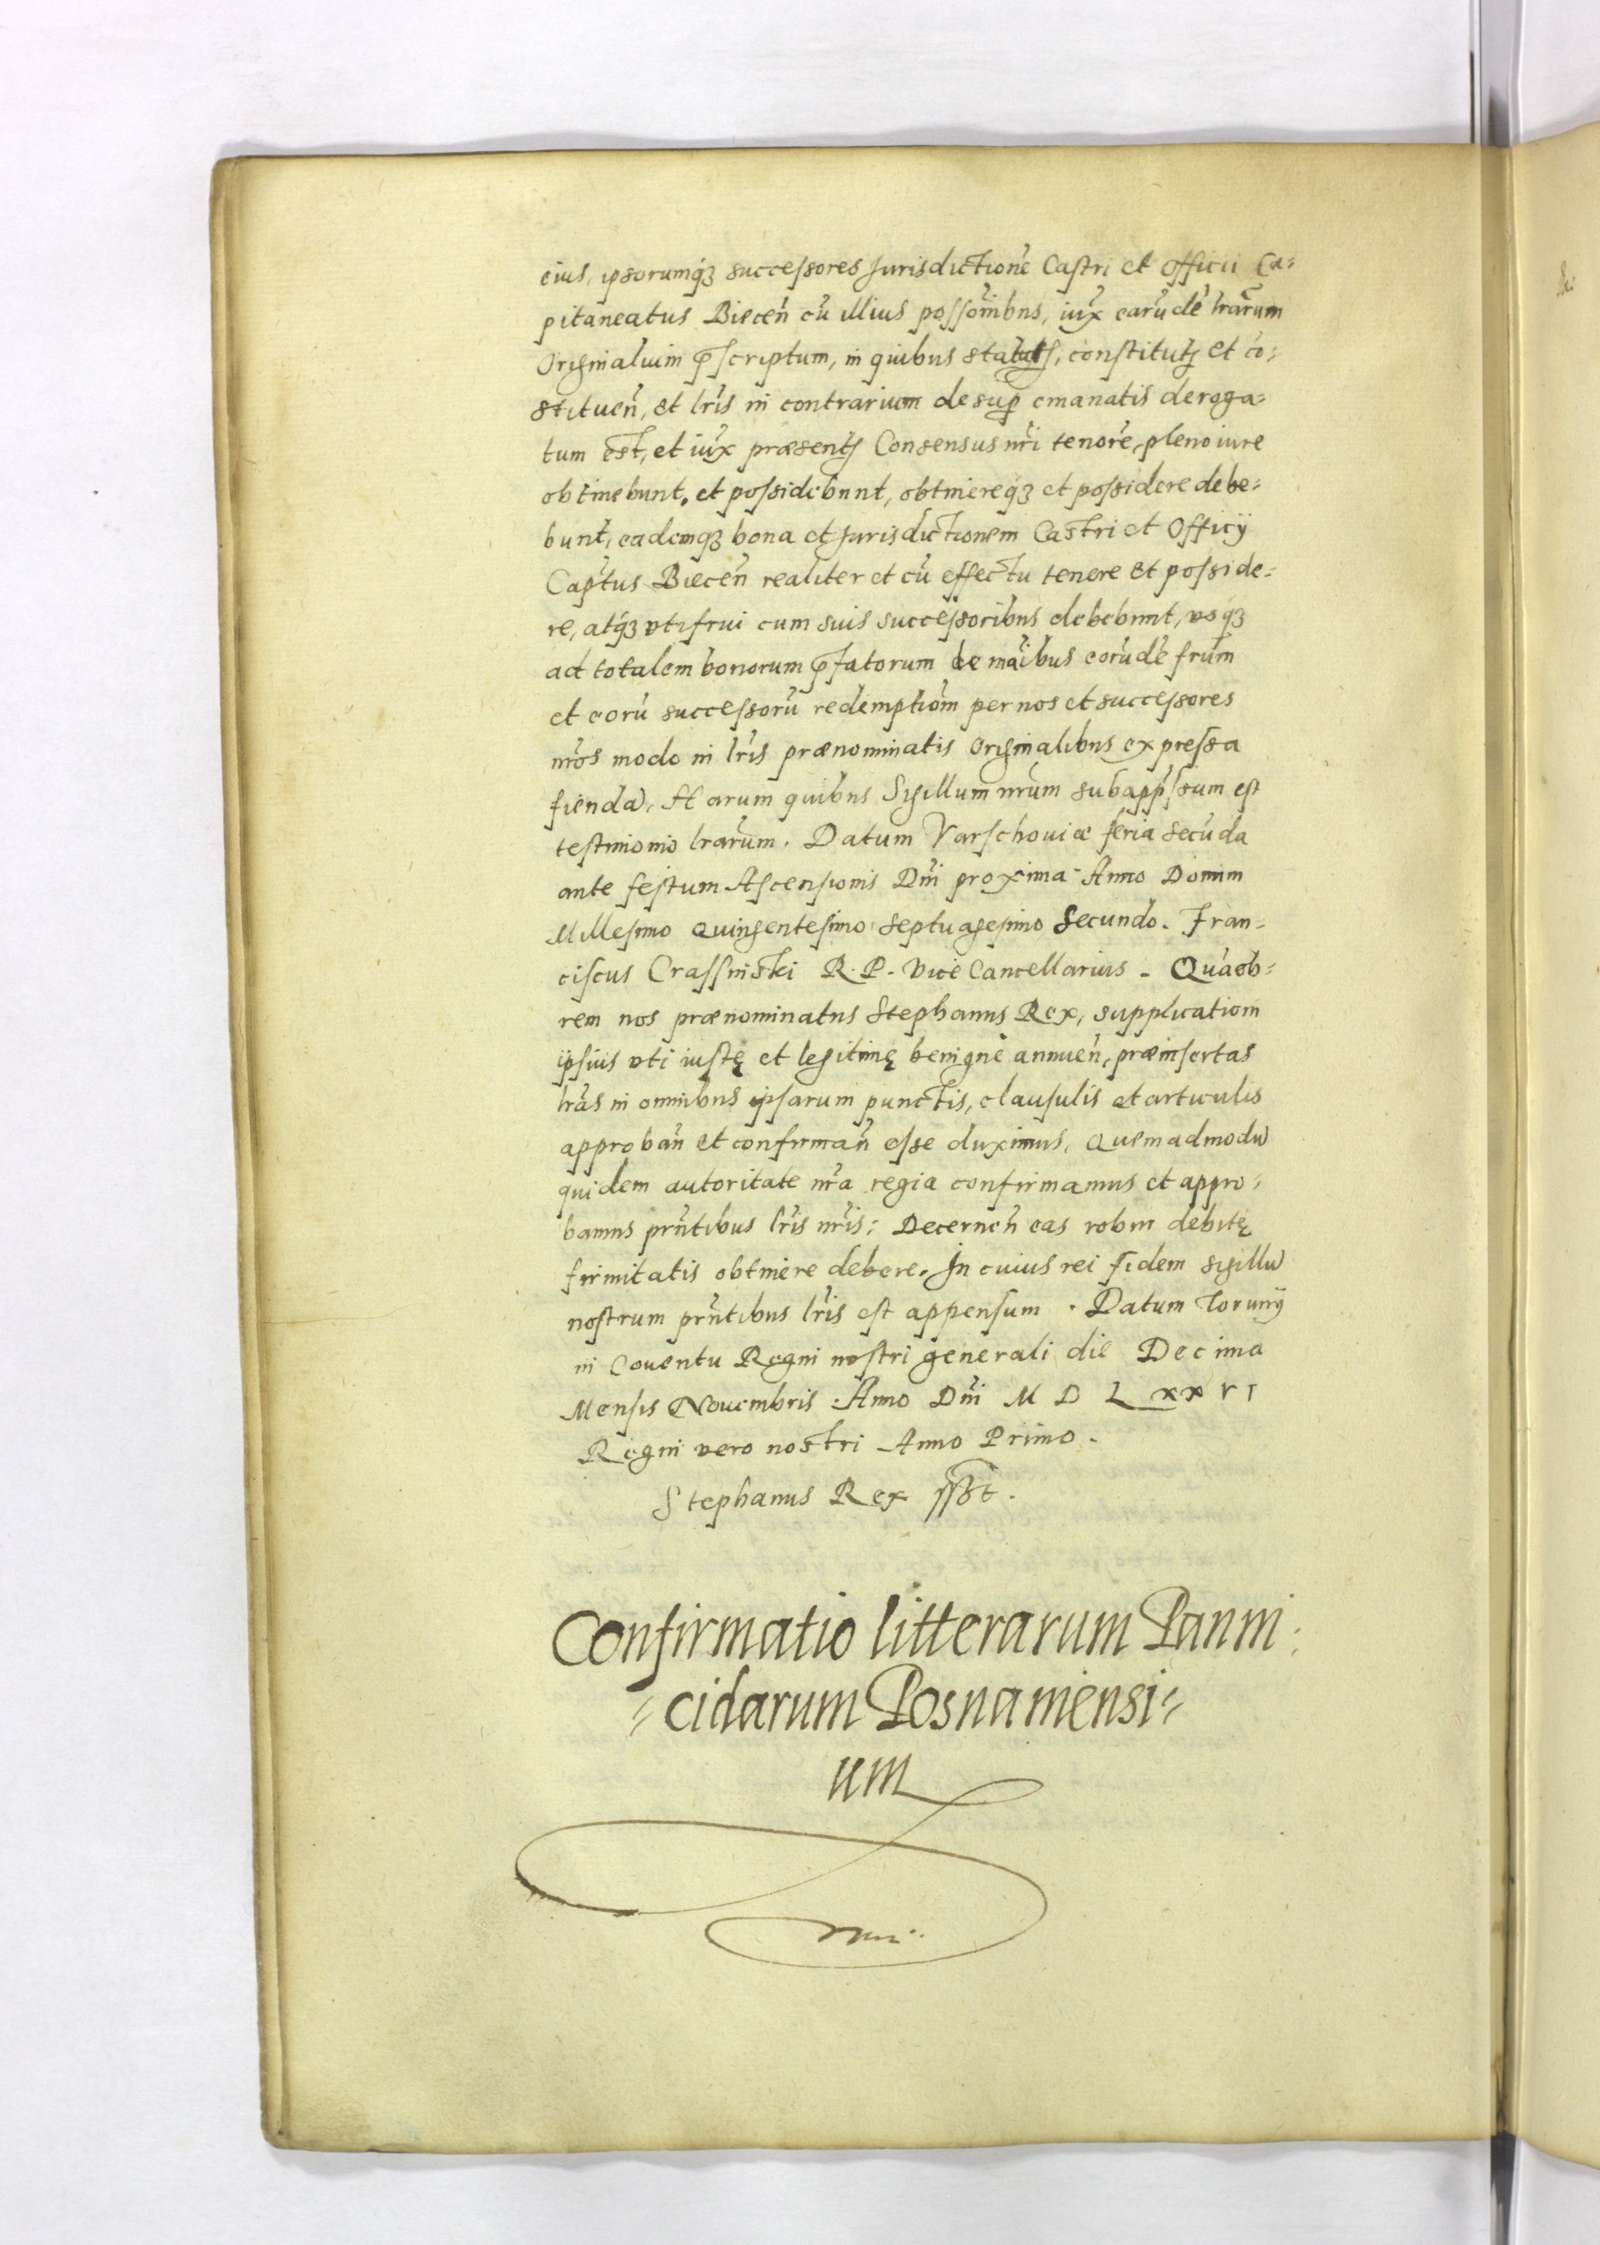 eius, ipsorumq́ꝫ successores Jurisdictionē Castri et Officii Ca-
pitaneatus Biecen̄ cū illius possōibus, iux̄ earūdē lrārum
Originalium p̄scriptum, in quibus statutꝭ, constitutꝭ et co-
stituen̄, et lrīs in contrarium desup̄ emanatis deroga-
tum est, et iux̄ præsentꝭ Consensus nrī tenorē, pleno iure
obtinebunt, et possidebunt, obtinereq́ꝫ et possidere debe-
bunt, eademqꝫ bona et Jurisdictionem Castri et Officij
Capt̄us Biecen̄ realiter et cū effectu tenere et posside-
re, atq́ꝫ vti frui cum suis successoribus debebunt, vsq́ꝫ
ad totalem bonorum p̄fatorum de māibus eorūdē frūm
et eorū successorū redemptiōm per nos et successores
nrōs modo in lrīs prænominatis Originalibus expressa
fiendā. Harum quibus Sigillum nrūm subapp̄ssum est
testimonio lrārum. Datum Varschouiæ feria secūda
ante festum Ascensionis Dnī proxima Anno Domini
Millesimo Quingentesimo Septuagesimo Secundo. Fran-
ciscus Crassinski R. P. Vice Cancellarius. Quāob-
rem nos prænominatus Stephanus Rex, supplicationi
ipsius vti iustę et legitimę benigne annuen̄, præinsertas
lrās in omnibus ipsarum punctis, clausulis et articulis
approban̄ et confirman̄ esse duximus, Quemadmodū
quidem autoritate nrā regia confirmamus et appro-
bamus prn̄tibus lrīs nrīs: Decernen̄ eas robur debitę
firmitatis obtinere debere. In cuius rei fidem sigillū
nostrum prn̄tibus lrīs est appensum. Datum Torunij
in Couentu Regni nostri generali die Decima
Mensis Nouembris Anno Dnī M D L xx v i
Regni vero nostri Anno Primo.
Stephanus Rex ssc̄t.
Confirmatio litterarum Panni-
-cidarum Posnaniensi-
um